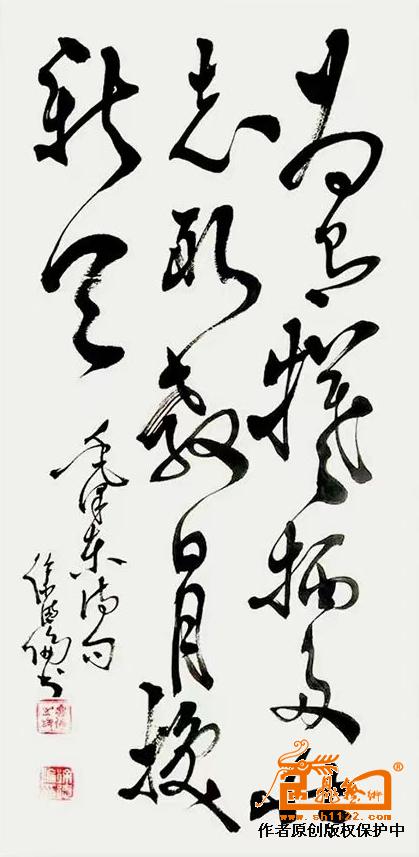 为有犧牲多壮
志敢教日月换
新天
毛泽东诗句
www.sh1122.com
作者原创版权保护中